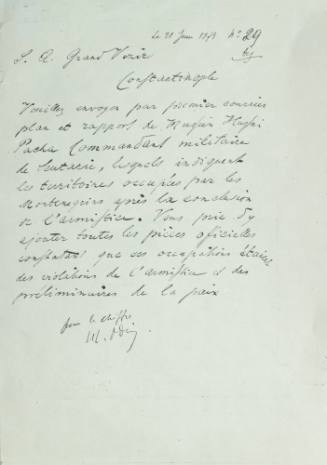 Le 28 1913 N° 29
S. A. Grand Vizir
Constantinople
Veuillez envoyer par premier courrier
plan et rapport de Hughi
Pacha Commandant militaire
de Scutarie, lesquels indiquent
les territoires occupées par les
Montenegrins après la conclusion
de l'armistice. Vous prie d'y
ajouter toutes les pièces officielles
constatant que ces occupations étaient
des violations de l'armistice et des
preliminaires de la paix
pour le chiffre